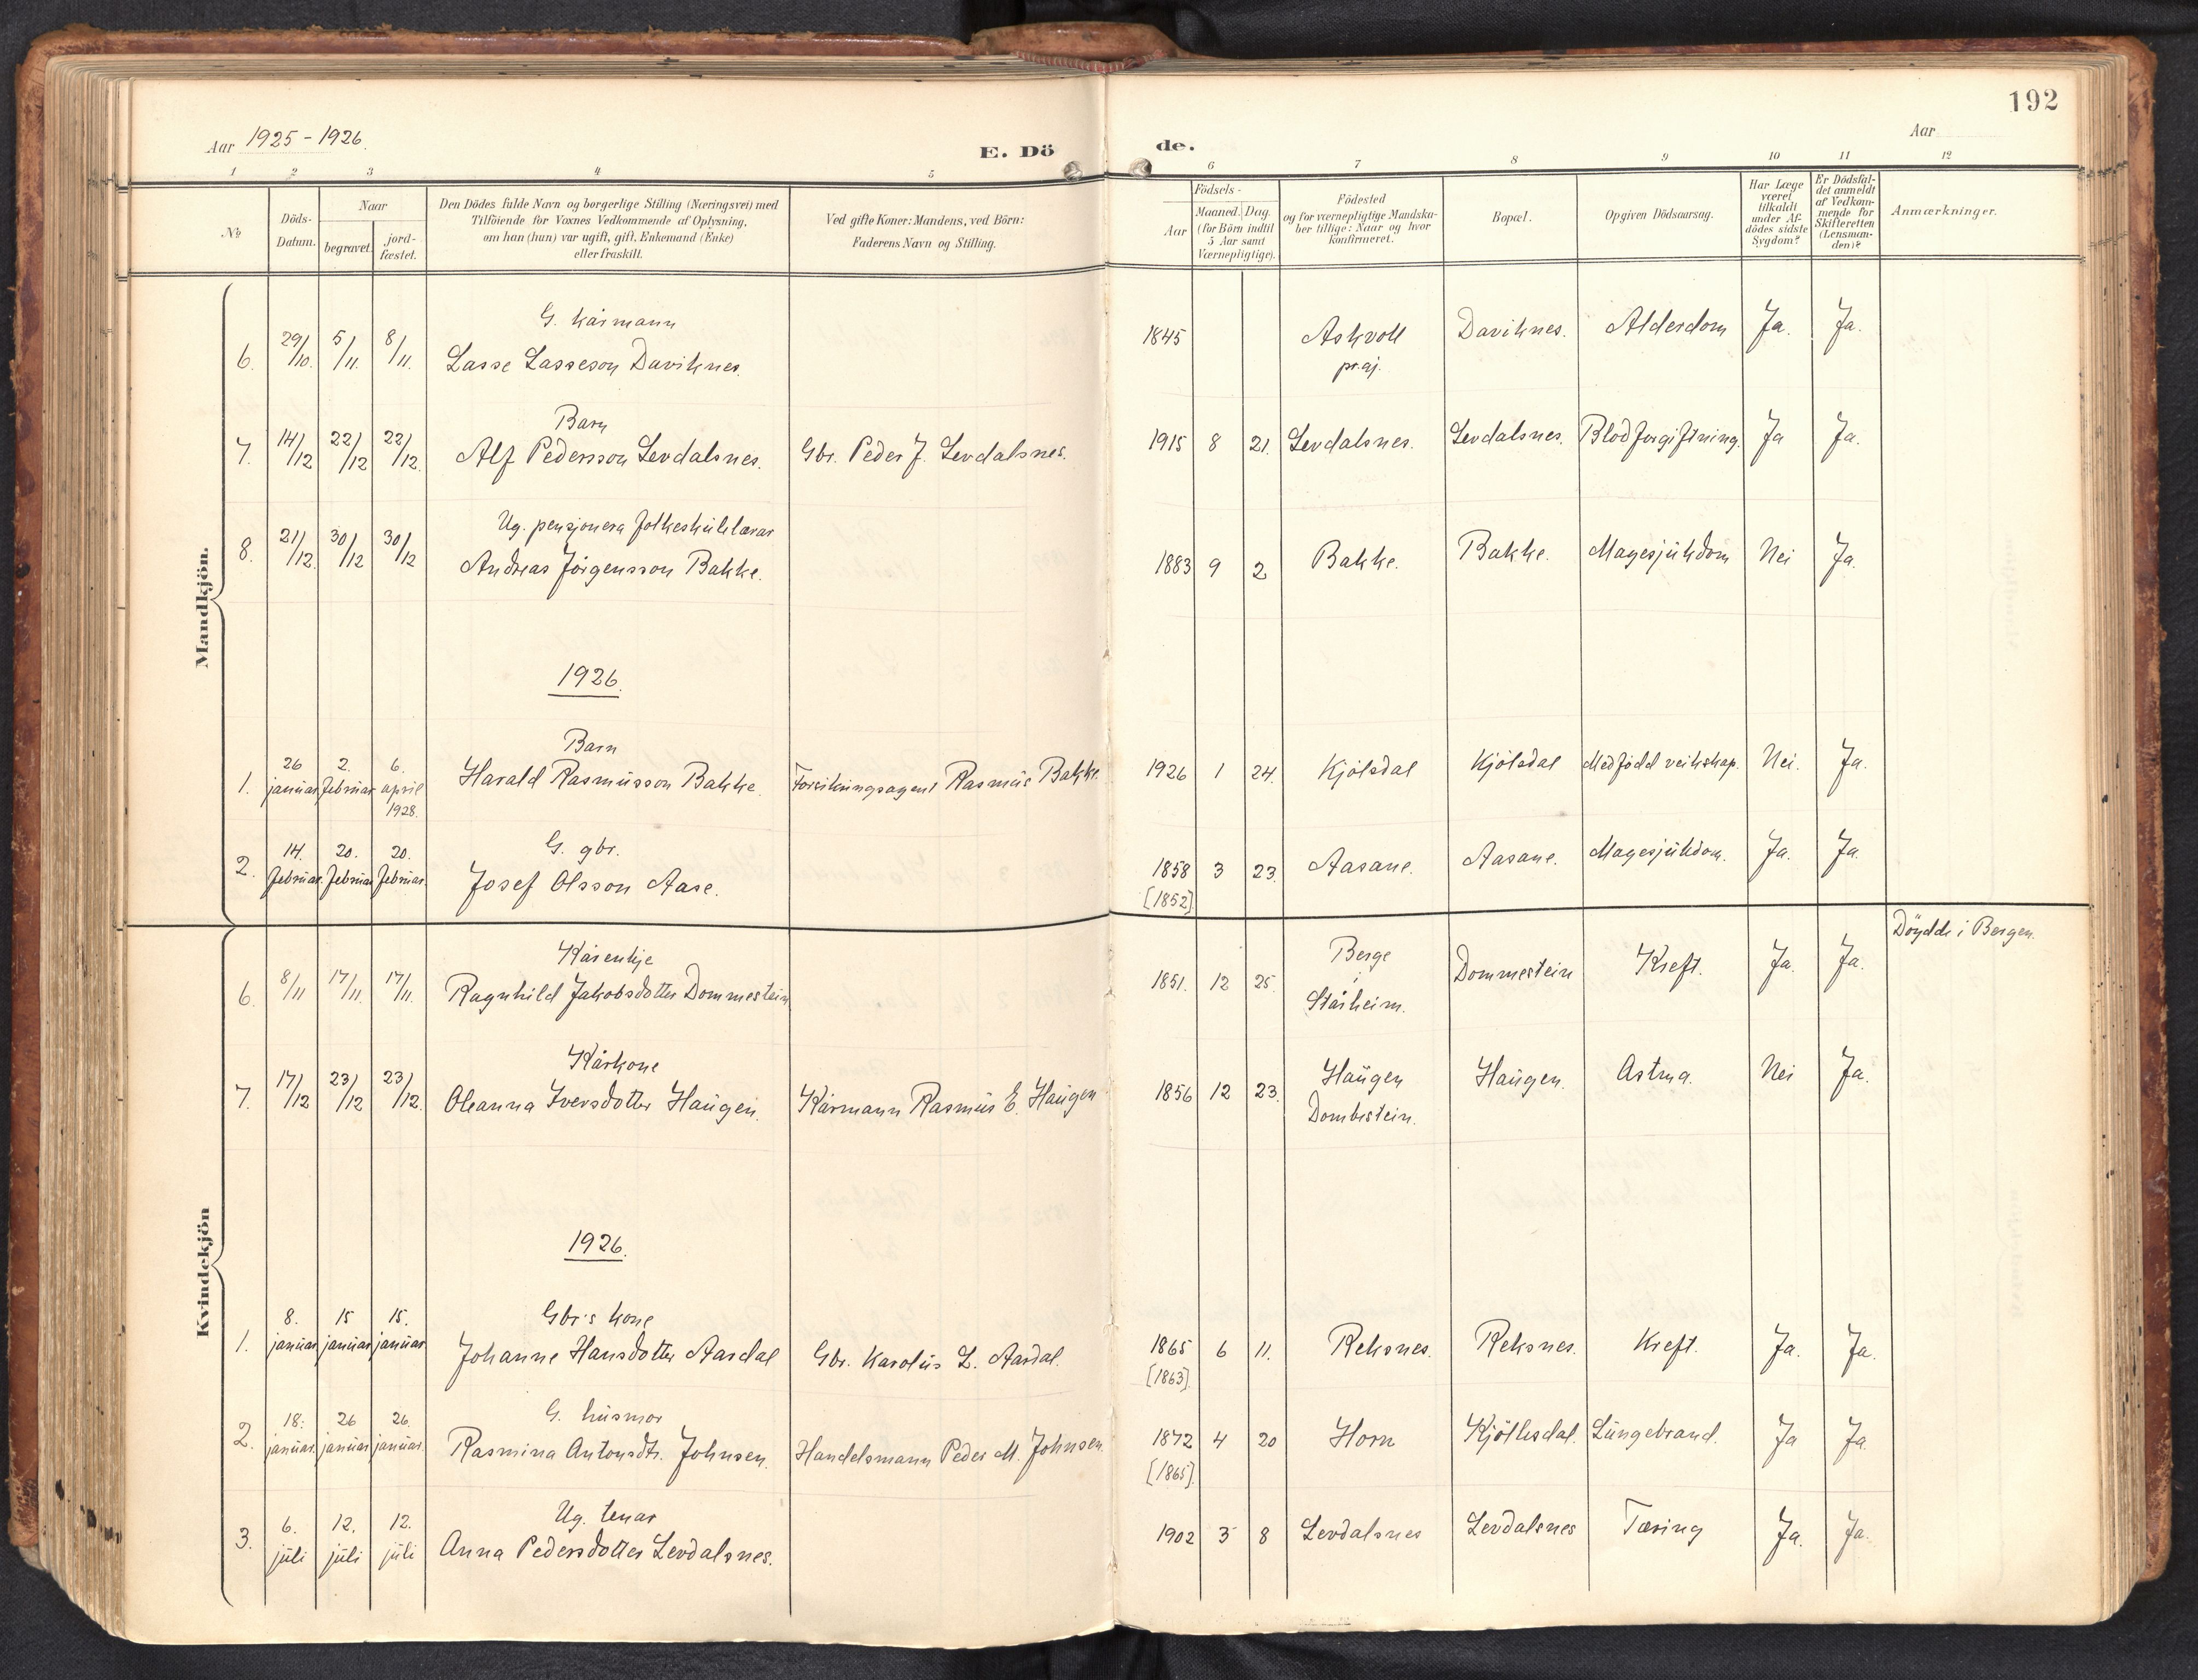 192
Aar 1925 - 1926.
E. Dö de.
Aar
1 2 3 4 5 6 7 8 9 10 11 12
№
Döds-Datum.
Naar
begravet.
jord-fæstet.
Den Dödes fulde Navn og borgerlige Stilling (Næringsvei) med
Tilföiende for Voxnes Vedkommende af Oplysning,
om han (hun) var ugift, gift, Enkemand (Enke)
eller fraskilt.
Ved gifte Koner: Mandens, ved Börn:
Faderens Navn og Stilling.
Födsels-
Aar
Maaned. Dag.
(for Börn indtil
5 Aar samt
Værnepligtige).
Födested
og for værnepligtige Mandska-
ber tillige: Naar og hvor
konfirmeret.
Bopæl.
Opgiven Dödsaarsag.
Har Læge
været
tilkaldt
under Af-
dödes sidste
Sygdom?
Er Dödsfal-
det anmeldt
af Vedkom-
mende for
Skifteretten
(Lensman-
den)?
Anmærkninger.
Mandkjön.
G. kårmann
6. 29/10. 5/11. 8/11. Lasse Lasseson Daviknes. 1845 Askvoll Daviknes. Alderdom Ja. Ja.
pr.gj.
Barn
7. 14/12 22/12 22/12. Alf Pedersson Levdalsnes. Gbr. Peder J. Levdalsnes. 1915 8 21. Levdalsnes. Levdalsnes. Blodforgiftning. Ja Ja.
Ug. pensjonera folkeskulelærar
8. 21/12. 30/12 30/12 Andreas Jörgensson Bakke. 1883 9 2 Bakke. Bakke. Magesjukdom Nei Ja.
1926.
Barn
1. 26 januar 2. februar 6. april 1928. Harald Rasmusson Bakke. Forsikringsagent Rasmus Bakke. 1926 1 24. Kjölsdal Kjölsdal Medfödd veikskap. Nei. Ja.
G. gbr.
2. 14. februar. 20. februar 20. februar. Josef Olsson Aase. 1858 3 23. Aasane. Aasane. Magesjukdom. Ja. Ja
[1852]
Kvindekjön
Döydde i Bergen.
Kårenkje
6. 8/11 17/11. 17/11. Ragnhild Jakobsdotter Dommestein 1851. 12 25. Berge Dommestein Kreft. Ja. Ja.
i
Stårheim.
Kårkone
7. 17/12 23/12 23/12. Oleanna Iversdotter Haugen. Kårmann Rasmus E. Haugen 1856 12 23. Haugen Haugen. Astma. Nei Ja.
Dombestein.
1926.
Gbr's kone
1. 8. januar 15 januar 15. januar Johanne Hansdotter Aardal Gbr. Karolus L. Aardal. 1865 6 11. Reksnes. Reksnes. Kreft. Ja. Ja.
[1863].
G. husmor
2. 18. januar. 26 januar 26. januar. Rasmina Antonsdtr. Johnsen. Handelsmann Peder M. Johnsen. 1872 4 20 Horn Kjöllesdal. Lungebrand. Ja Ja.
[1865].
Ug. tenar
3. 6. juli 12. juli 12. juli Anna Pedersdotter Levdalsnes. 1902 3 8 Levdalsnes Levdalsnes Tæring Ja. Ja.